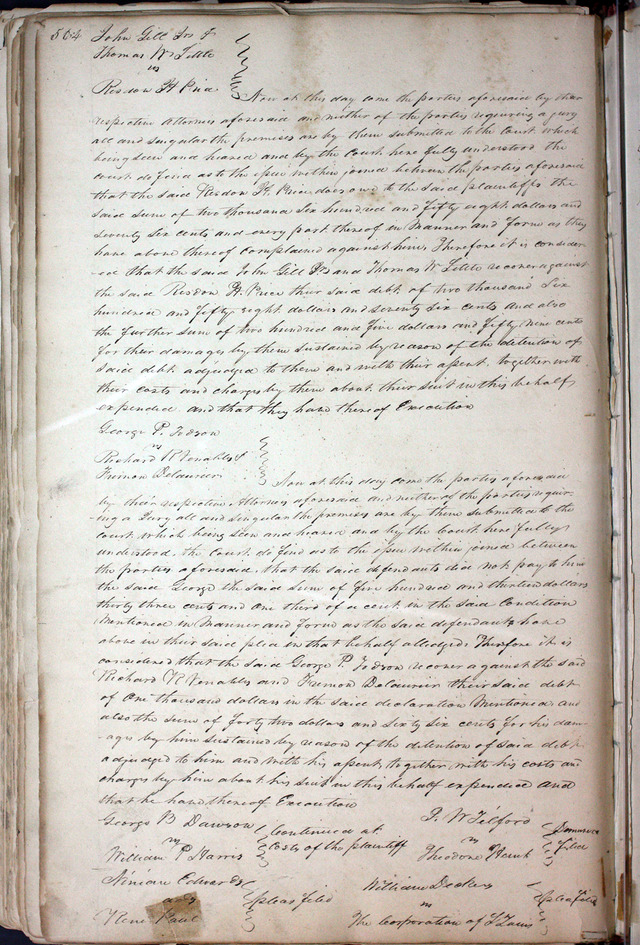 564 John Gill Jr &
Thomas W Tittle
vs
Resdon H Price
Now at this day come the parties aforesaid by their
respective Attornies aforesaid and neither of the parties requiring a jury
all and singular the premises are by them submitted to the Court which
being seen and heared and by the Court here fully understood the
court do find as to the issue within joined between the parties aforesaid
that the said Resdon H. Price does owe to the said plaintiffs the
said sum of two thousand six hundred and fifty eight dollars and
seventy six cents and every part thereof in Manner and form as they
have above thereof complained against him, Therefore it is consider
ed that the said John Gill Jr and Thomas W. Tittle recover against
the said Resdon H. Price their said debt of two thousand Six
hundred and fifty eight dollars and seventy six cents and also
the further sum of two hundred and five dollars and fifty nine cents
for their damages by them sustained by reason of the detention of
said debt adjudged to them and with their assent, together with
their costs and charges by them about their suit in this behalf
expended and that they have thereof Execution
George P. Todson
vs
Richard K Venables &
Fremon Delaurier
Now at this day come the parties aforesaid
by their respective Attornies aforesaid and neither of the parties requir
ing a Jury all and singular the premises are by them submitted to the
court which being seen and heared and by the Court here fully
understood, the Court do find as to the issue within joined between
the parties aforesaid, that the said defendants did not pay to him
the said George the said sum of five hundred and thirteen dollars
thirty three cents and one third of a cent in the said Condition
Mentioned in Manner and form as the said defendants have
above in their said plea in that behalf alledged; Therefore it is
considered that the said George P. Todson recover against the said
Richard K Venables and Fremon Delaurier their said debt
of One thousand dollars in the said declaration Mentioned and
also the sum of forty two dollars and sixty six cents for his dam
ages by him sustained by reason of the detention of said debt
adjudged to him and with his assent, together, with his costs and
charges by him about his suit in this behalf expended and
that he have thereof Execution
George B Dawson
vs
William P Harris
Continued at
Costs of the plaintiff
J. W Telford
vs
Theodore Hunt
Demurrer
Filed
Ninian Edwards
vs
Rene Paul
pleas filed
William Deckers
vs
The Corporation of St Louis
pleas filed